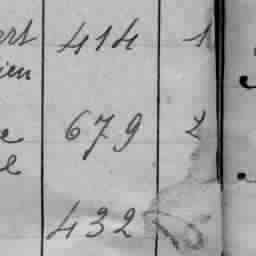 ert 414 1
ien
e 679 2
e
432